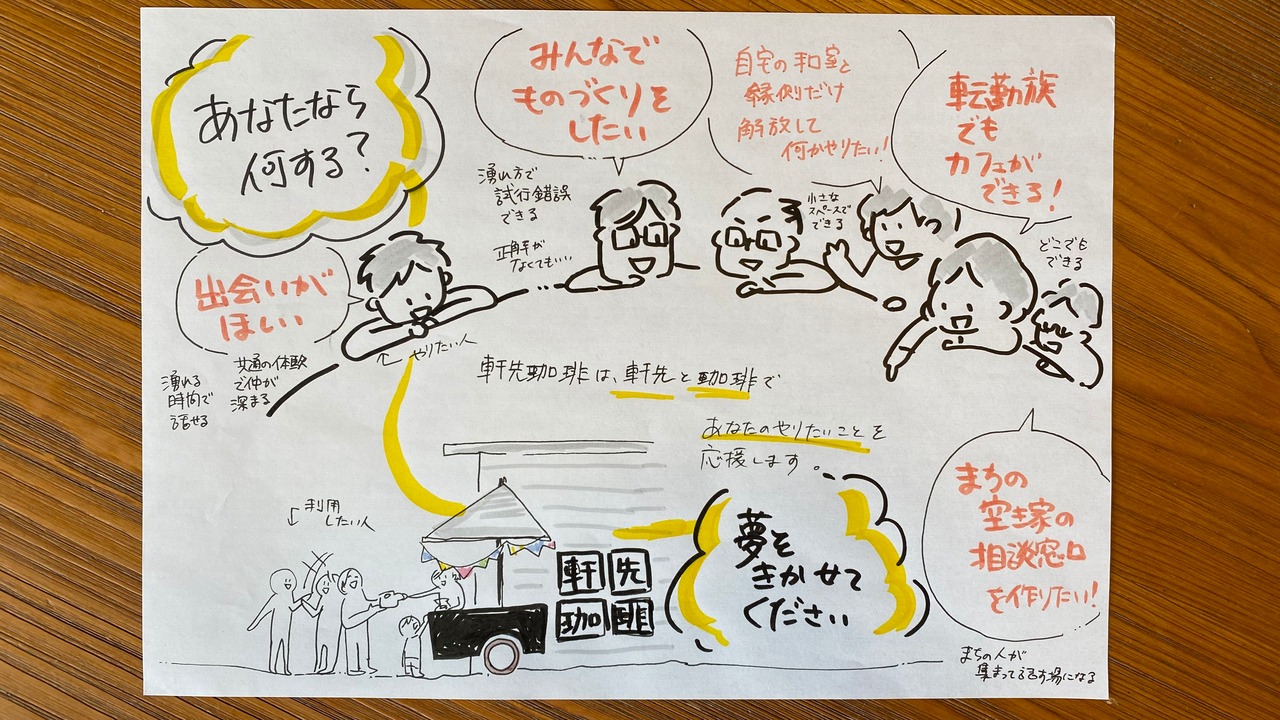 あなたなら
何する?
みんなで
ものづくりを
したい
自宅の和室と
縁側だけ
解放して
何かやりたい!
転勤族
でも
カフェが
できる!
湧れ方で
試行錯誤
できる
正解が
なくてもいい
小さな
スペースで
できる
どこでも
できる
出会いが
ほしい
← やりたい人
湧れる
時間で
話せる
共通の体験
で仲が
深まる
軒先珈琲は、軒先と珈琲で
あなたのやりたいことを
応援します。
利用
したい人
軒先
珈琲
夢を
きかせて
ください
まちの
空き家の
相談窓口
を作りたい!
まちの人が
集まって話す場になる